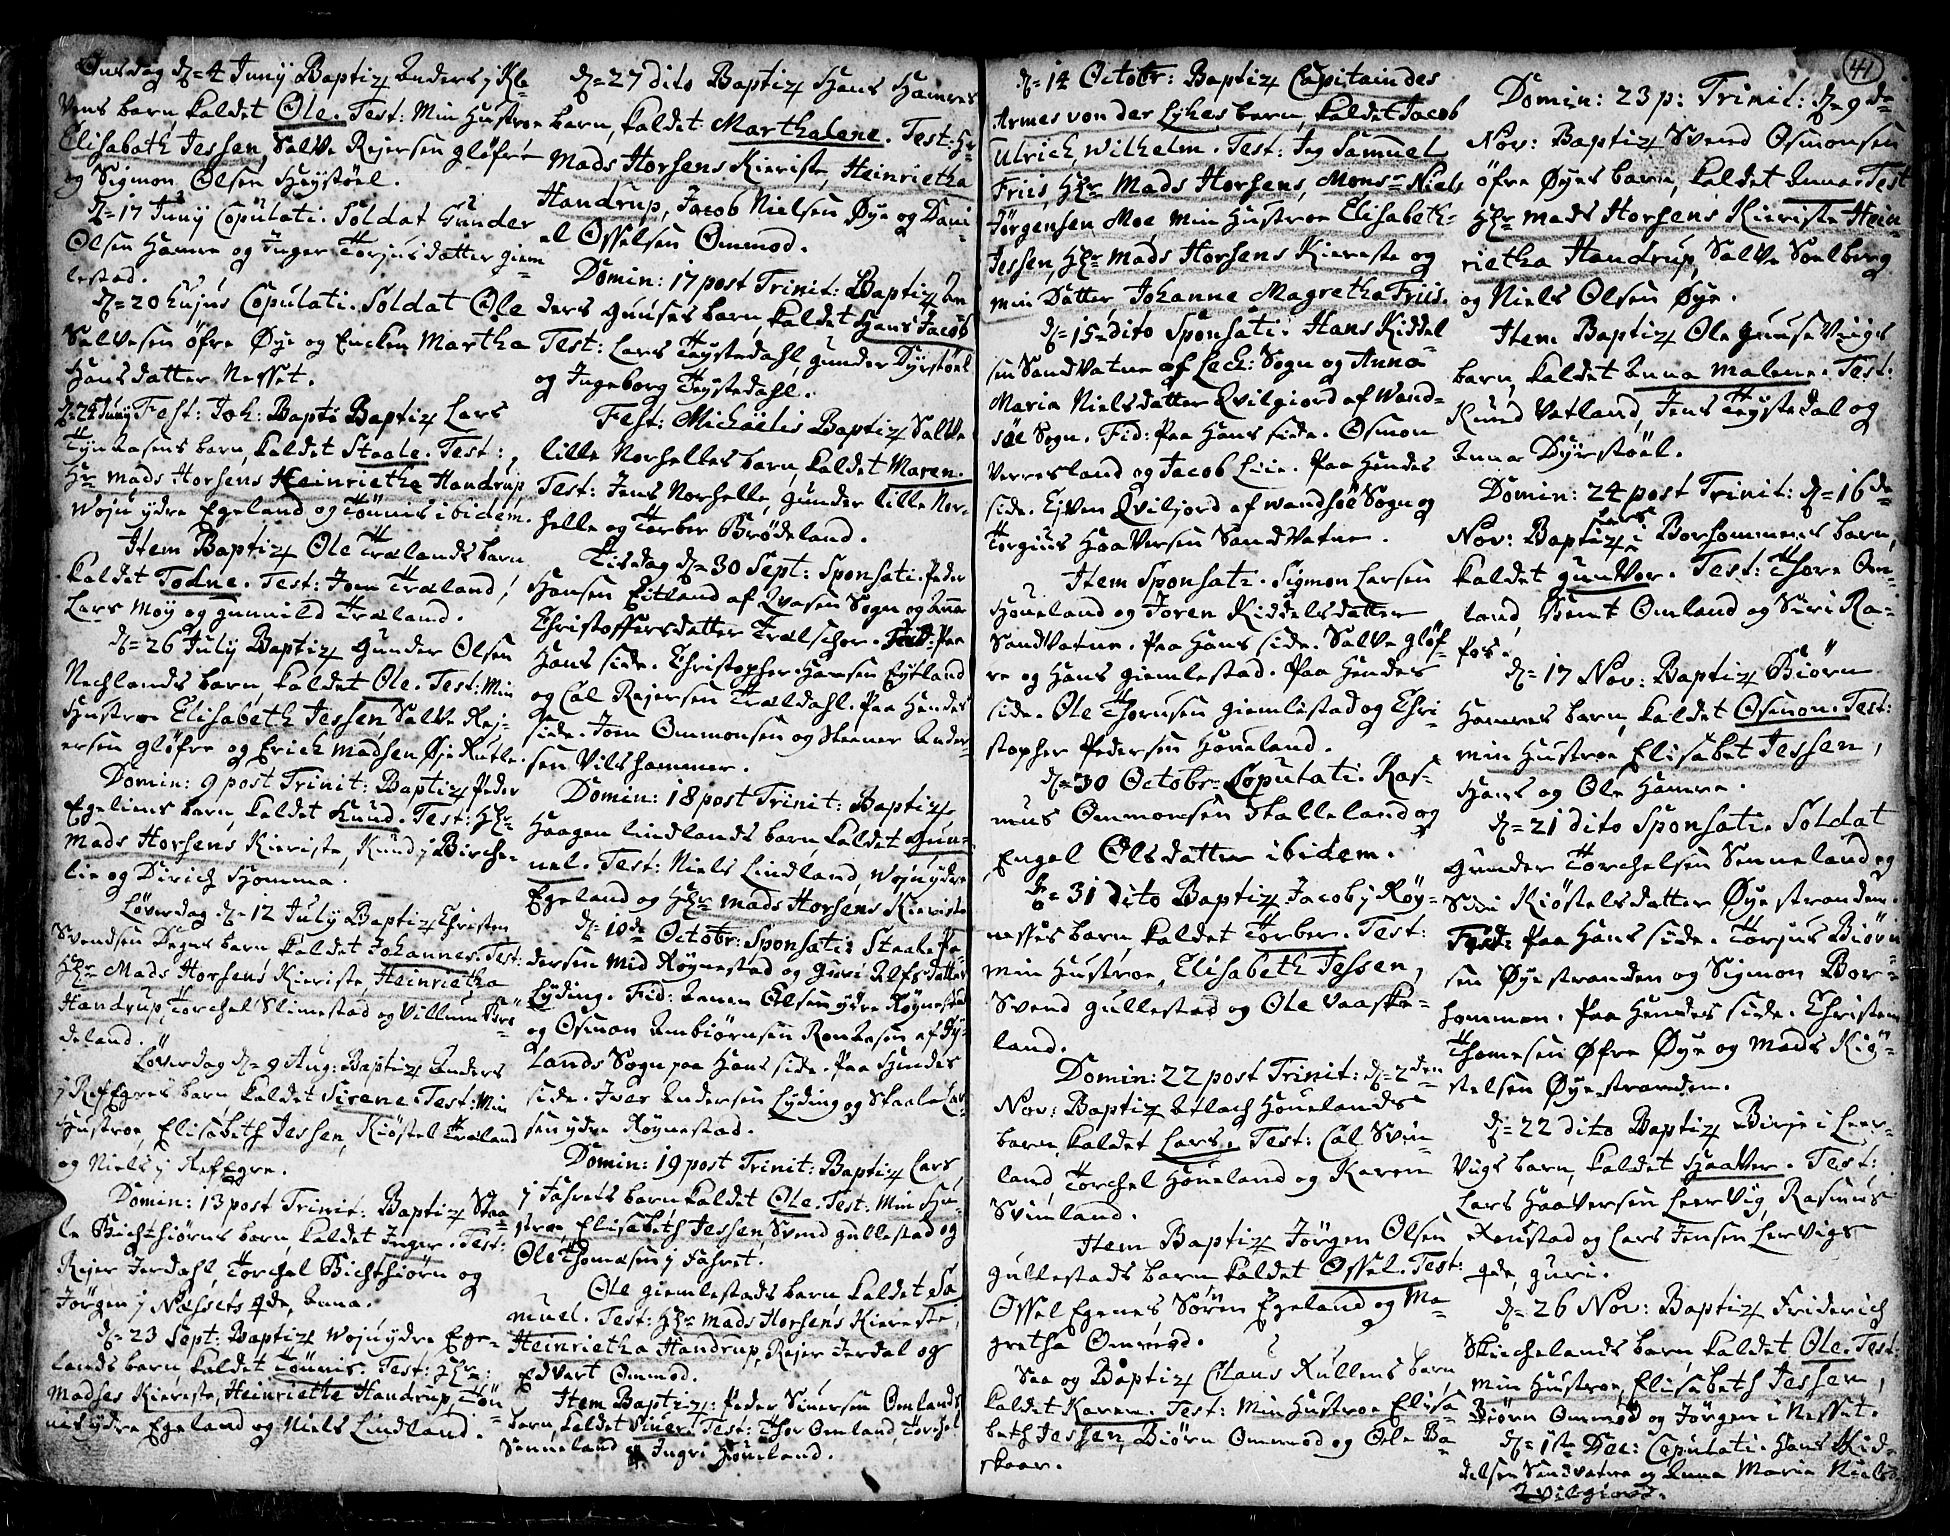 Onsdag d. 4 Junÿ Baptiz Anders j Kle
Vens barn, kaldet Ole. Test: Min Hustroe
Elisabeth Jessen, Salve Rejersen Gløfre
og Sigmon Olsen Høystøel.
d. 17 Junÿ Copulati. Soldat Gunder
Olsen Hamre og Inger Torjusdatter Giem
lestad.
d. 20 hujus Copulati. Soldat Ole
Salvesen øfre Øye og Encken Martha
Hansdatter Nesset.
d. 24 Junÿ Fest: Joh: Bapts Baptiz Lars
barn, kaldet Staale. Test:
Hr. Mads Horsens Heinrietha Handrup
Woju ydre Egeland og Tönnis ibidem.
Item Baptiz Ole Trælands barn
kaldet Todne. Test: Joen Træland,
Lars Moy og Gunnild Træland.
d. 26 July Baptiz Gunder Olsen
Nechlands barn, kaldet Ole. Test: Min
Hustroe Elisabeth Jessen, Salve Rej-
ersen Gløfre og Erich Madsen Øje
Domin: 9 post Trinit: Baptiz Peder
Egeliens barn, kaldet Knud. Test: Hr
Mads Horsens Kieriste, Knud j Bircke-
lie og Dirich Homma.
Løverdag d. 12 July Baptiz Christen
Svendsen Degns barn kaldet Johannes. Test:
Hr Mads Horsens Kieriste Heinrietha
Handrup, Torchel Slimestad og Villum Brö
deland.
Løverdag d. 9 Aug: Baptiz Anders
j Refegres barn kaldet Sirene. Test: Min
Hustroe, Elisabeth Jessen, Kiöstel Træland
og Niels j Refegre.
Domin: 13 post Trinit: Baptiz Staa-
le Bichthiörns barn, kaldet Inger. Test:
Rejer Jerdahl, Torchel Bichthiörn og
Jörgen j Næssets qde, Anna.
d. 23 Sept: Baptiz Woju ydre Ege-
lands barn, kaldet Tönnis. Test: Hr
Madses Kiereste, Heinriette Handrup, Tön
nis ydre Egeland og Niels Lindland.
d. 27 dito Baptiz Hans Hamres
barn, kaldet Marthalene. Test: Hr
Mads Horsens Kieriste, Heinrietha
Handrup, Jacob Nielsen Øye og Dani-
el Osselsen Ommod.
Domin: 17 post Trinit: Baptiz An
ders Gunses barn, kaldet Hans Jacob
Test: Lars Trystedahl, Gunder Dyrstöel
og Ingeborg Trystedahl.
Fest: Michaëlis Baptiz Salve
lille Norhelles barn, kaldet Maren.
Test: Jens Norhelle, Gunder lille Nor-
helle og Torber Brödeland.
Tisdag d. 30 Sept: Sponsati. Peder
Hansen Eitland af Qvasen Sogn og Anna
Christoffersdatter Trælschor. Fid: Paa
Hans side. Christopher Hansen Eytland
og Cal Rejersen Trældahl. Paa Hendes
side. Joen Ommonsen og Steener Ander-
sen Vilshammer.
Domin: 18 post Trinit: Baptiz
Haagen Lindlands barn, kaldet Gun-
nel. Test: Niels Lindland, Woju ydre
Egeland og Hr Mads Horsens Kieriste
d. 10de Octobr: Sponsati: Staale Pe-
dersen Mid Röynestad og Guri Alfsdatter
Lyding. Fid: Anen Olsen ydre Röynestad
og Osmon Anbiörnsen Ronæsen af Fy-
lands Sogn paa Hans side. Paa Hendes
side. Iver Andersen Lyding og Staale Lar-
sen ydre Röynestad.
Domin: 19 post Trinit: Baptiz Lars
j Jahrets barn kaldet Ole. Test: Min Hu-
stroe, Elisabeth Jessen, Svend Gullestad og
Ole Thomæsen j Jahret.
Ole Giemlestads barn kaldet Sa
muel. Test: Hr Mads Horsens Kiereste,
Heinrietha Handrup, Rejer Jerdal og
Edvart Ommod.
Item Baptiz: Peder Siversen Omlands
barn, kaldet Siver. Test: Thor Omland, Torchel
Senneland og Ingri Høneland.
d. 14 Octobr: Baptiz Capitain des
Armes von der Lykes barn, kaldet Jacob
Ulrich Wilhelm. Test: Jeg Samuel
Friis, Hr Mads Horsens, Monsr Niels
Jørgensen Moe, min Hustroe Elisabeth
Jessen, Hr Mads Horsens Kiereste og
min Datter Johanne Magretha Friis.
d. 15 dito Sponsati. Hans Kiddel
sen Sandvatne af Leck: Sogn og Anna
Maria Nielsdatter Qvilgiord af Wand-
söe Sogn. Fid: Paa Hans side. Osmon
Verresland og Jacob Lie. Paa Hendes
side. Ejven Qviljord af Wandsöe Sogn og
Torgius Haaversen Sandvatne.
Item Sponsati. Sigmon Larsen
Høneland og Joren Kiddelsdatter
Sandvatne. Paa Hans side. Salve Gløf-
re og Hans Giemlestad. Paa Hendes
side. Ole Thorusen Giemlestad og Chri-
stopher Pedersen Høneland.
d. 30 Octobr: Copulati. Ras-
mus Ommonsen Stalleland og
Engel Olsdatter ibidem.
d. 31 dito Baptiz Jacob j Röy-
nesses barn, kaldet Torber. Test:
Min Hustroe, Elisabeth Jessen,
Svend Gullestad og Ole Vaaske-
land.
Domin: 22 post Trinit: d. 2den
Nov: Baptiz Atlach Hönelands
barn kaldet Lars. Test: Cal Svin-
land, Torchel Høneland og Karen
Svinland.
Item Baptiz Jörgen Olsen
Gullestads barn kaldet Ossel. Test:
Ossel Egenes, Sören Egeland og Ma
gretha Ommod.
Saa og Baptiz Claus Kullens barn
kaldet Karen. Test: Min Hustroe Elisa-
beth Jessen, Biörn Ommod og Ole Ba-
skaar.
41
Domin: 23 p: Trinit: d. 9de
Nov: Baptiz Svend Osmonsen
øfre Øyes barn, kaldet Anna. Test
Hr Mads Horsens Kieriste Hein
rietha Handrup, Salve Soelberg
og Niels Olsen Øye.
Item Baptiz Ole Gunse Viigs
barn, kaldet Anna Malene. Test:
Knud Vatland, Jens Trystedal og
Anna Dyrstöel.
Domin: 24 post Trinit: d. 16de
Nov: Baptiz Lars i Borhommens barn,
kaldet Gunvor. Test: Thore Om-
land, Bernt Omland og Siri Ra-
fos.
d. 17 Nov: Baptiz Biörn
Hamres barn, kaldet Osmon. Test:
min Hustroe Elisabet Jessen,
Hans og Ole Hamre.
d. 21 dito Sponsati. Soldat
Gunder Torchelsen Senneland og
Siri Kiöstelsdatter Øyestranden.
Fid: Paa Hans side. Torjus Biörn
sen Øyestranden og Sigmon Bor-
hommen. Paa Hendes side. Christen
Thomesen Øfre Øye og Mads Kiö-
stelsen Øyestranden.
d. 22 dito Baptiz Birje i Leer-
Vigs barn, kaldet Haaver. Test:
Lars Haaversen Leervig, Rasmus
Röustad og Lars Jensen Leervigs
qde, Guri.
d. 26 Nov: Baptiz Friderich
Stichelands barn, kaldet Ole. Test:
Min Hustroe, Elisabeth Jessen,
Biörn Ommod og Jörgen i Nesset.
d. 1ste Dec: Copulati. Hans Kid-
delsen Sandvatne og Anna Maria Niels
Qvilgiord.